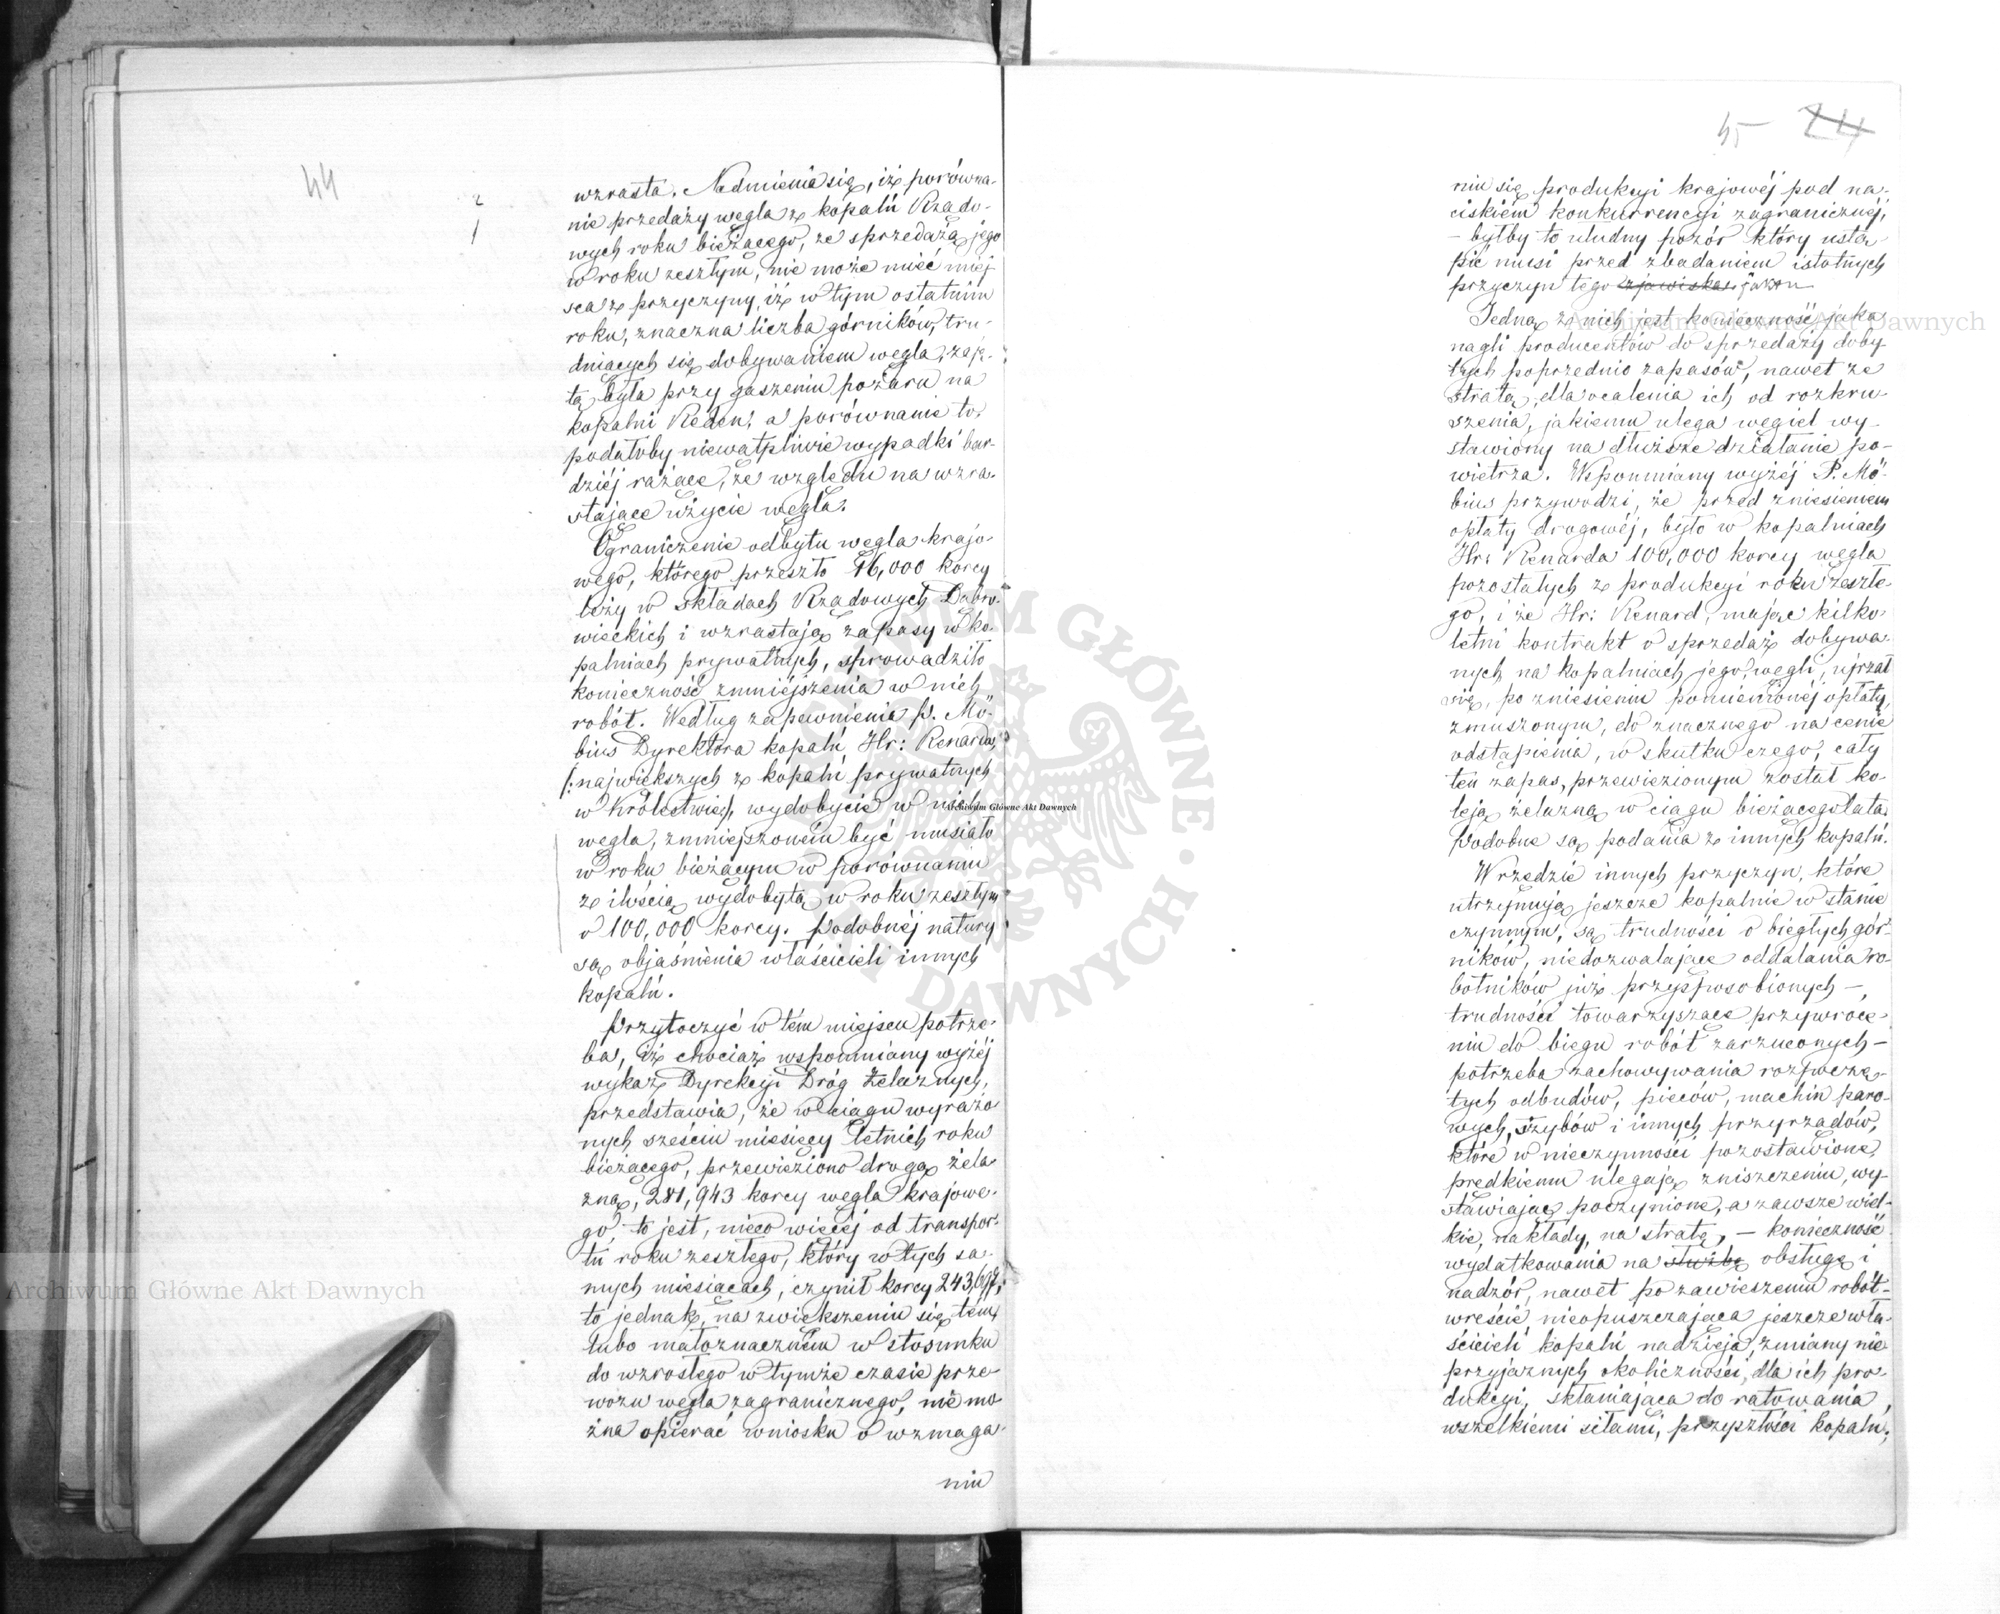 44
2
1
wzrasta. Nadmienia się, iż porówna-
nie przedaży węgla z kopalń Rządo-
wych roku bieżącego, ze sprzedażą jego
w roku zeszłym, nie może mieć miej
sca z przyczyny, iż w tym ostatnim
roku, znaczna liczba górników, tru-
dniących się dobywaniem węgla, zaję-
tą była przy gaszeniu pożaru na
kopalni Reden, a porównanie to,
podałoby niewątpliwie wypadki bar-
dziéj rażące, ze względu na wzra-
stające użycie węgla.
Ograniczenie odbytu węgla krajo-
wego, którego przeszło 16,000 korcy
leży w składach Rządowych Dąbro-
wieckich i wzrastają zapasy w ko-
palniach prywatnych, sprowadziło
konieczność zmniéjszenia w nich
robót. Według zapewnienia P. Mö-
bius Dyrektora kopalń Hr: Renarda,
/:największych z kopalń prywatnych
w Królestwie:/, wydobycie w nich
węgla, zmniejszoném być musiało
w roku bieżącym w porównaniu
z ilością wydobytą w roku zeszłym
o 100,000 korcy. Podobnéj natury
są objaśnienia właścicieli innych
kopalń.
Przytoczyć w tém miejscu potrze-
ba, iż chociaż wspomniany wyżéj
wykaz Dyrekcyi Dróg Żelaznych,
przedstawia, że w ciągu wyrażo
nych sześciu miesięcy letnich roku
bieżącego, przewieziono drogą żela
zną, 281,943 korcy węgla krajowe-
go, to jest, nieco więcéj od transpor-
tu roku zeszłego, który w tych sa-
mych miesiącach, czynił korcy 243,697;
to jednak, na zwiększeniu się tém
lubo małoznaczném w stosunku
do wzrosłego w tymże czasie prze
wozu węgla zagranicznego, nie mo
żna opierać wniosku o wzmaga-
niu
45 24
niu się produkcyi krajowéj pod na-
ciskiém konkurrencyi zagranicznéj,
– byłby to złudny pozór który ustą-
pić musi przed zbadaniem istotnych
przyczyn tego zjawiska
Jedną z nich jest konieczność jaka
nagli producentów do sprzedaży doby
tych poprzednio zapasów, nawet ze
stratą, dla ocalenia ich od rozkru-
szenia, jakiemu ulega węgiel wy-
stawiony na dłuższe działanie po-
wietrza. Wspomniany wyżéj P. Mö-
bius przywodzi, że przed zniesieniem
opłaty drogowéj, było w kopalniach
Hr: Renarda 100,000 korcy węgla
pozostałych z produkcyi roku zeszłe-
go, i że Hr: Renard, mając kilko-
letni kontrakt o sprzedaż dobywa-
nych na kopalniach jego, węgli, ujrzał
się, po zniesieniu pomienionéj opłaty,
zmuszonym, do znacznego na cenie
odstąpienia, w skutku czego, cały
ten zapas, przewiezionym został ko-
leją żelazną w ciągu bieżącego lata.
Podobne są podania z innych kopalń.
W rzędzie innych przyczyn, które
utrzymują jeszcze kopalnie w stanie
czynnym, są trudności o biegłych gór-
ników, niedozwalające oddalania ro-
botników już przysposobionych –,
trudności towarzyszące przywróce-
niu do biegu robót zarzuconych –
potrzeba zachowywania rozpoczę-
tych odbudów, pieców, machin paro-
wych, szybów i innych przyrządów,
które w nieczynności pozostawione,
prędkiemu ulegają zniszczeniu, wy-
stawiając poczynione, a zawsze wiel-
kie, nakłady, na stratę, – konieczność
wydatkowania na służbę obsługę i
nadzór, nawet po zawieszeniu robót –
wreście, nieopuszczająca jeszcze wła-
ścicieli kopalń nadzieja, zmiany nie
przyjaznych okoliczności, dla ich pro-
dukcyi, skłaniająca do ratowania,
wszelkiemi siłami, przyszłości kopalń;
Archiwum Główne Akt Dawnych
Archiwum Główne Akt Dawnych
Archiwum Główne Akt Dawnych
ARCHIWUM GŁÓWNE · AKT DAWNYCH ·